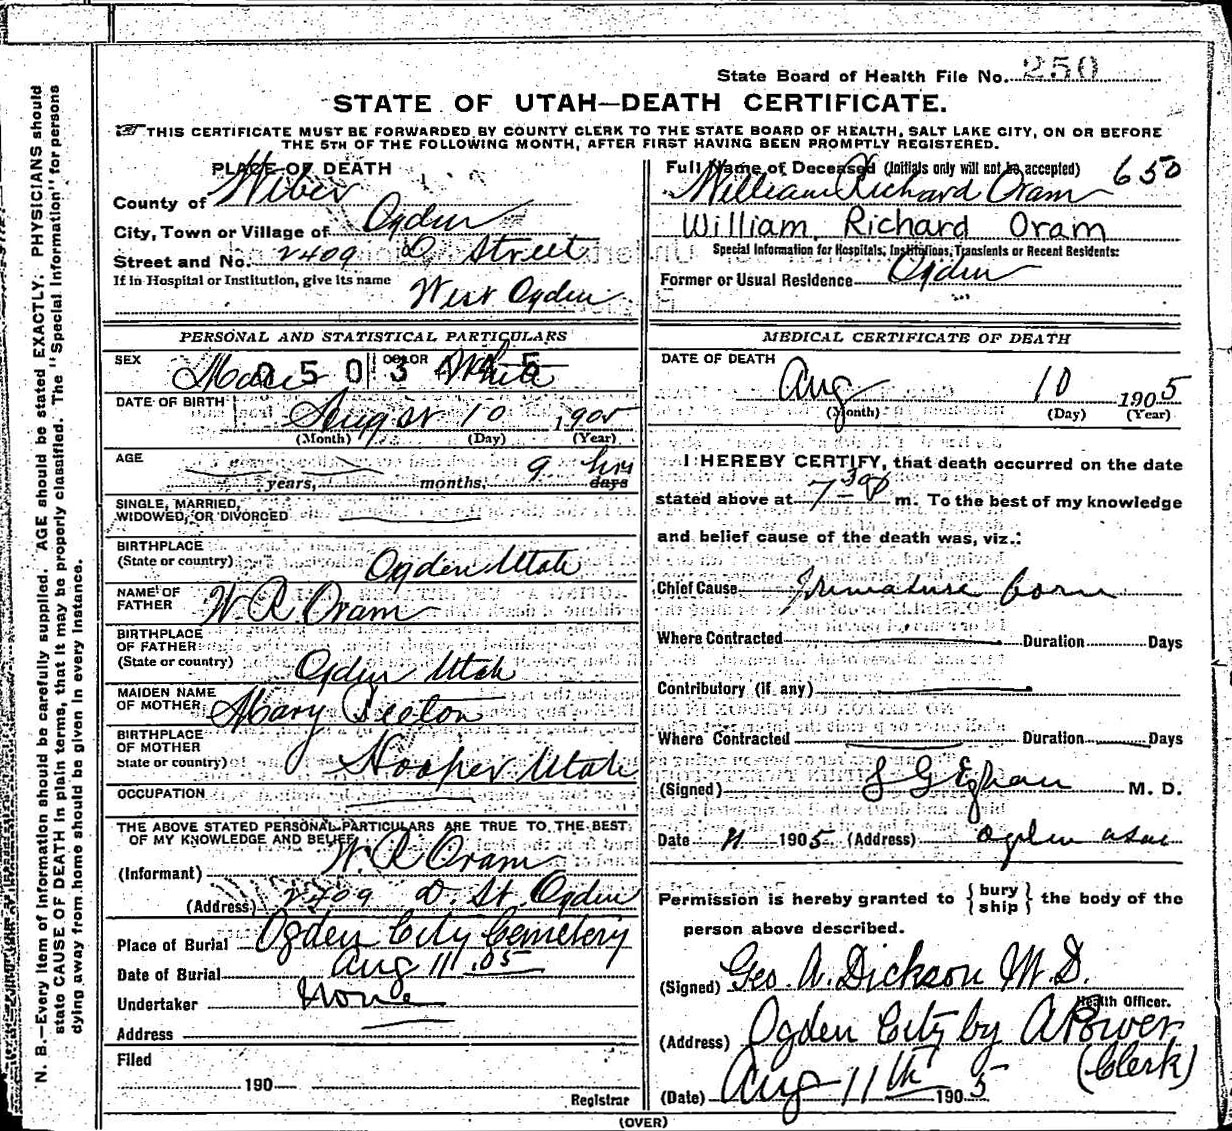 State Board of Health File No. 250
STATE OF UTAH—DEATH CERTIFICATE.
THIS CERTIFICATE MUST BE FORWARDED BY COUNTY CLERK TO THE STATE BOARD OF HEALTH, SALT LAKE CITY, ON OR BEFORE
THE 5TH OF THE FOLLOWING MONTH, AFTER FIRST HAVING BEEN PROMPTLY REGISTERED.
PLACE OF DEATH
County of Weber
City, Town or Village of Ogden
Street and No. 2409 D Street
If in Hospital or Institution, give its name
West Ogden
Full Name of Deceased (Initials only will not be accepted) 650
William Richard Oram
William Richard Oram
Special Information for Hospitals, Institutions, Transients or Recent Residents:
Former or Usual Residence Ogden
PERSONAL AND STATISTICAL PARTICULARS
SEX Male COLOR White
0 5 0 3
DATE OF BIRTH August 10 1905
(Month) (Day) (Year)
AGE years, months, 9 hrs days
SINGLE, MARRIED,
WIDOWED, OR DIVORCED
BIRTHPLACE
(State or country) Ogden Utah
NAME OF
FATHER W. R. Oram
BIRTHPLACE
OF FATHER
(State or country) Ogden Utah
MAIDEN NAME
OF MOTHER Mary
BIRTHPLACE
OF MOTHER
State or country) Hooper Utah
OCCUPATION
THE ABOVE STATED PERSONAL PARTICULARS ARE TRUE TO THE BEST
OF MY KNOWLEDGE AND BELIEF
(Informant) W. R. Oram
(Address) 2409 D. St. Ogden
Place of Burial Ogden City Cemetery
Date of Burial Aug 11. 05
Undertaker None
Address
Filed
190
Registrar
MEDICAL CERTIFICATE OF DEATH
DATE OF DEATH
Aug 10 1905
(Month) (Day) (Year)
I HEREBY CERTIFY, that death occurred on the date
stated above at 7-30 P m. To the best of my knowledge
and belief cause of the death was, viz.:
Chief Cause Premature born
Where Contracted Duration Days
Contributory (if any)
Where Contracted Duration Days
(Signed) M. D.
Date 11 1905 (Address) Ogden
Permission is hereby granted to {bury ship} the body of the
person above described.
(Signed) Geo. A. Dickson M. D.
Health Officer.
(Address) Ogden City by A Power
(Clerk)
(Date) Aug 11th 1905
(OVER)
N. B.—Every item of information should be carefully supplied. AGE should be stated EXACTLY. PHYSICIANS should
state CAUSE OF DEATH in plain terms, that it may be properly classified. The "Special Information" for persons
dying away from home should be given in every instance.